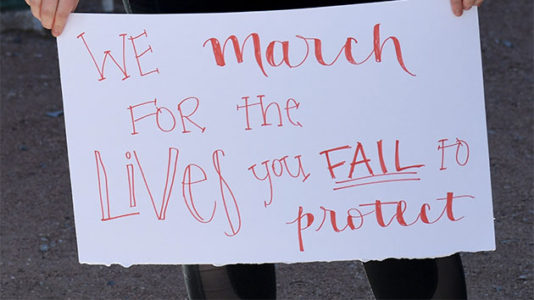 WE march
FOR the
Lives you FAIL to
protect